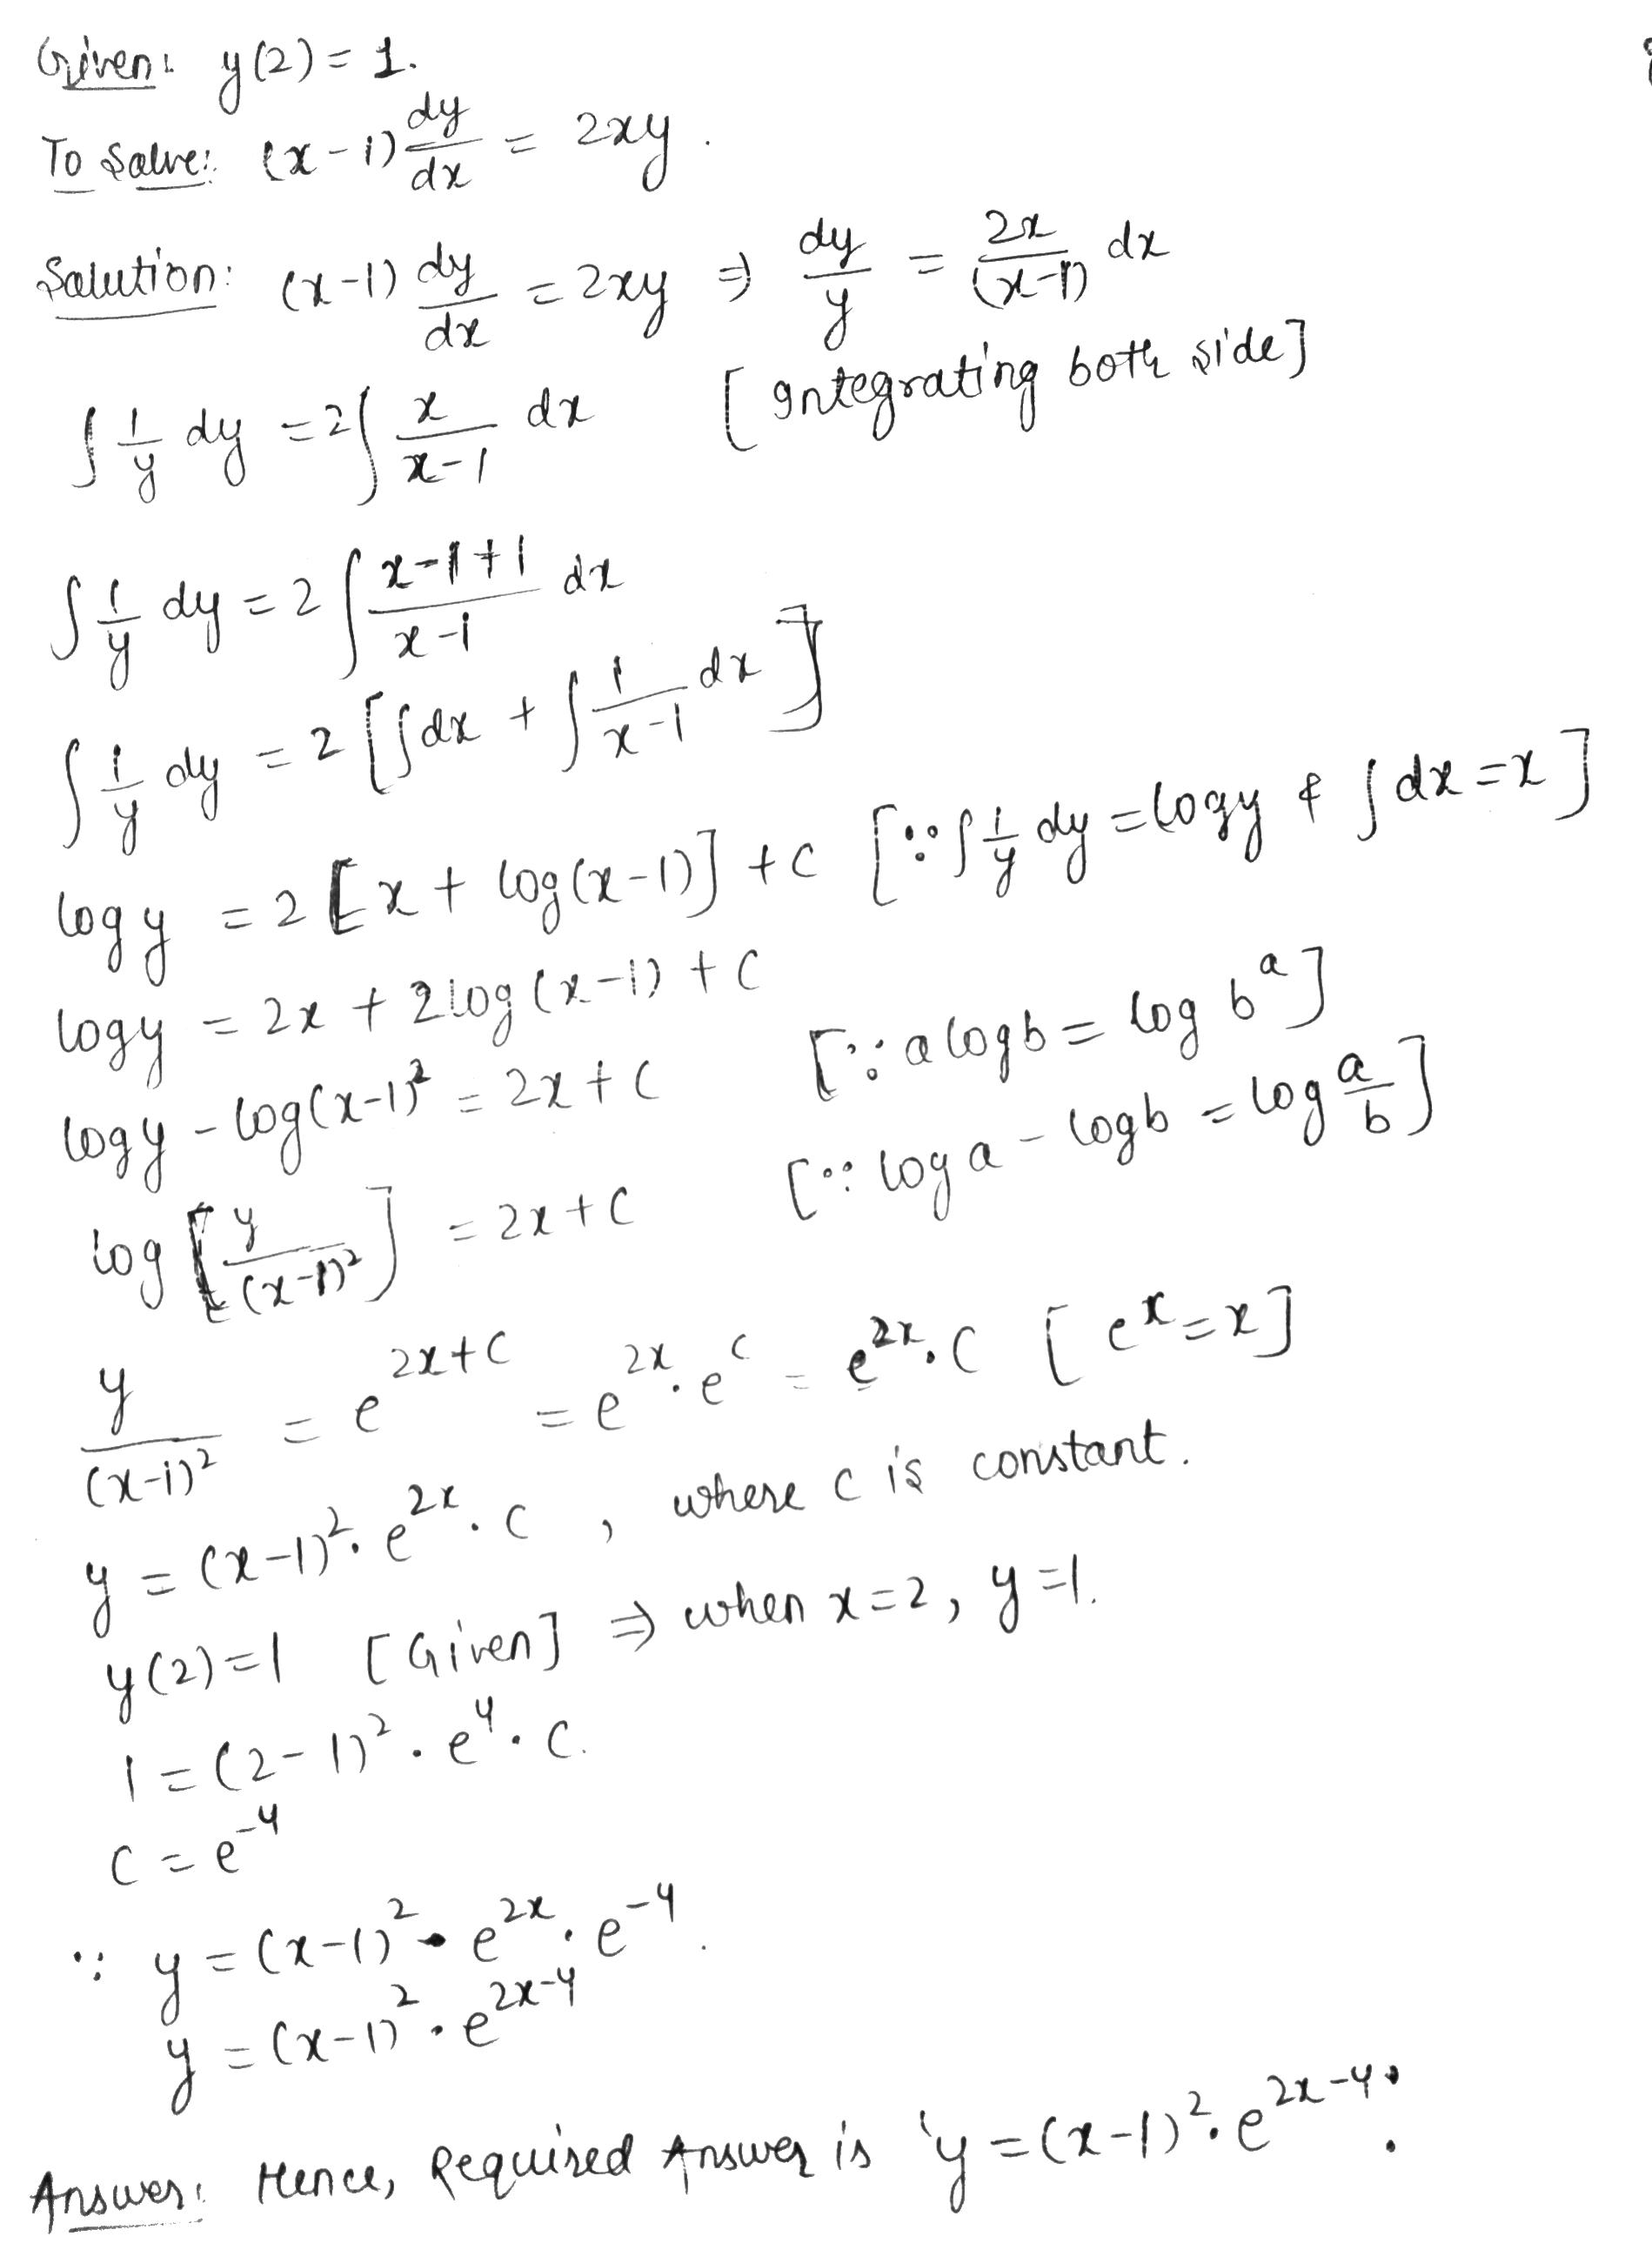 Given: y(2) = 1.
To Solve: (x-1) dy/dx = 2xy.
Solution: (x-1) dy/dx = 2xy ⇒ dy/y = 2x/(x-1) dx
∫ 1/y dy = 2∫ x/(x-1) dx [Integrating both side]
∫ 1/y dy = 2 ∫ (x-1+1)/(x-1) dx
∫ 1/y dy = 2 [∫dx + ∫ 1/(x-1) dx]
log y = 2 [x + log(x-1)] + C [∵ ∫ 1/y dy = log y & ∫ dx = x]
log y = 2x + 2 log (x-1) + C
log y - log(x-1)² = 2x + C [∵ a log b = log b^a]
log [y/(x-1)²] = 2x + C [∵ log a - log b = log a/b]
y/(x-1)² = e^(2x+C) = e^(2x) . e^C = e^(2x) . C [e^x = x]
y = (x-1)² . e^(2x) . C , where C is constant.
y(2) = 1 [Given] ⇒ when x = 2, y = 1.
1 = (2-1)² . e^4 . C.
C = e^(-4)
∵ y = (x-1)² . e^(2x) . e^(-4).
y = (x-1)² . e^(2x-4)
Answer: Hence, Required Answer is 'y = (x-1)² . e^(2x-4).